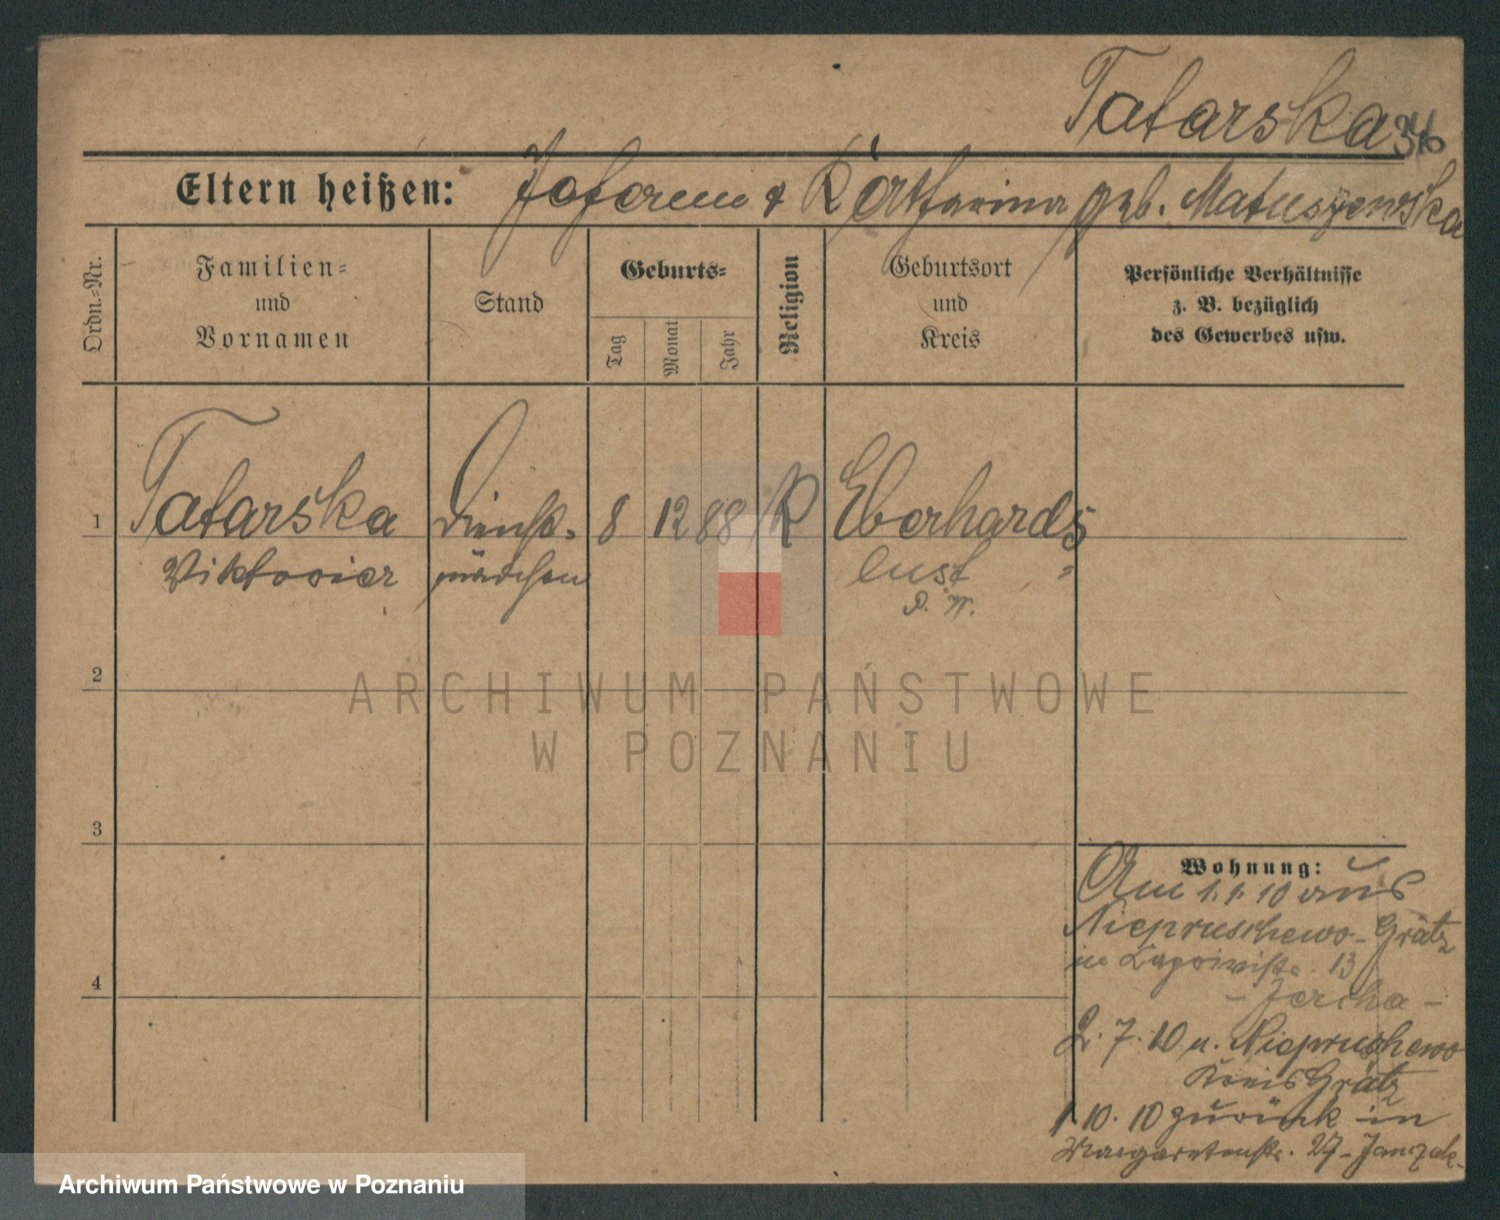 Tatarska
Eltern heißen: Johann & Katharina geb. Matuszewska
Ordn.-Nr.
Familien-
und
Vornamen
Stand
Geburts-
Tag
Monat
Jahr
Religion
Geburtsort
und
Kreis
Persönliche Verhältnisse
z. B. bezüglich
des Gewerbes usw.
1
Tatarska Dienst- 8 12 88 K Eberhards
Viktoria mädchen lust
2
3
4
Wohnung:
Am 1.1.10 aus
Niepruschewo-Grätz
in 13
2.7.10 n. Niepruschewo
Kreis Grätz
1.10.10 zurück in
Margaretenstr. 27-
ARCHIWUM PAŃSTWOWE
W POZNANIU
Archiwum Państwowe w Poznaniu